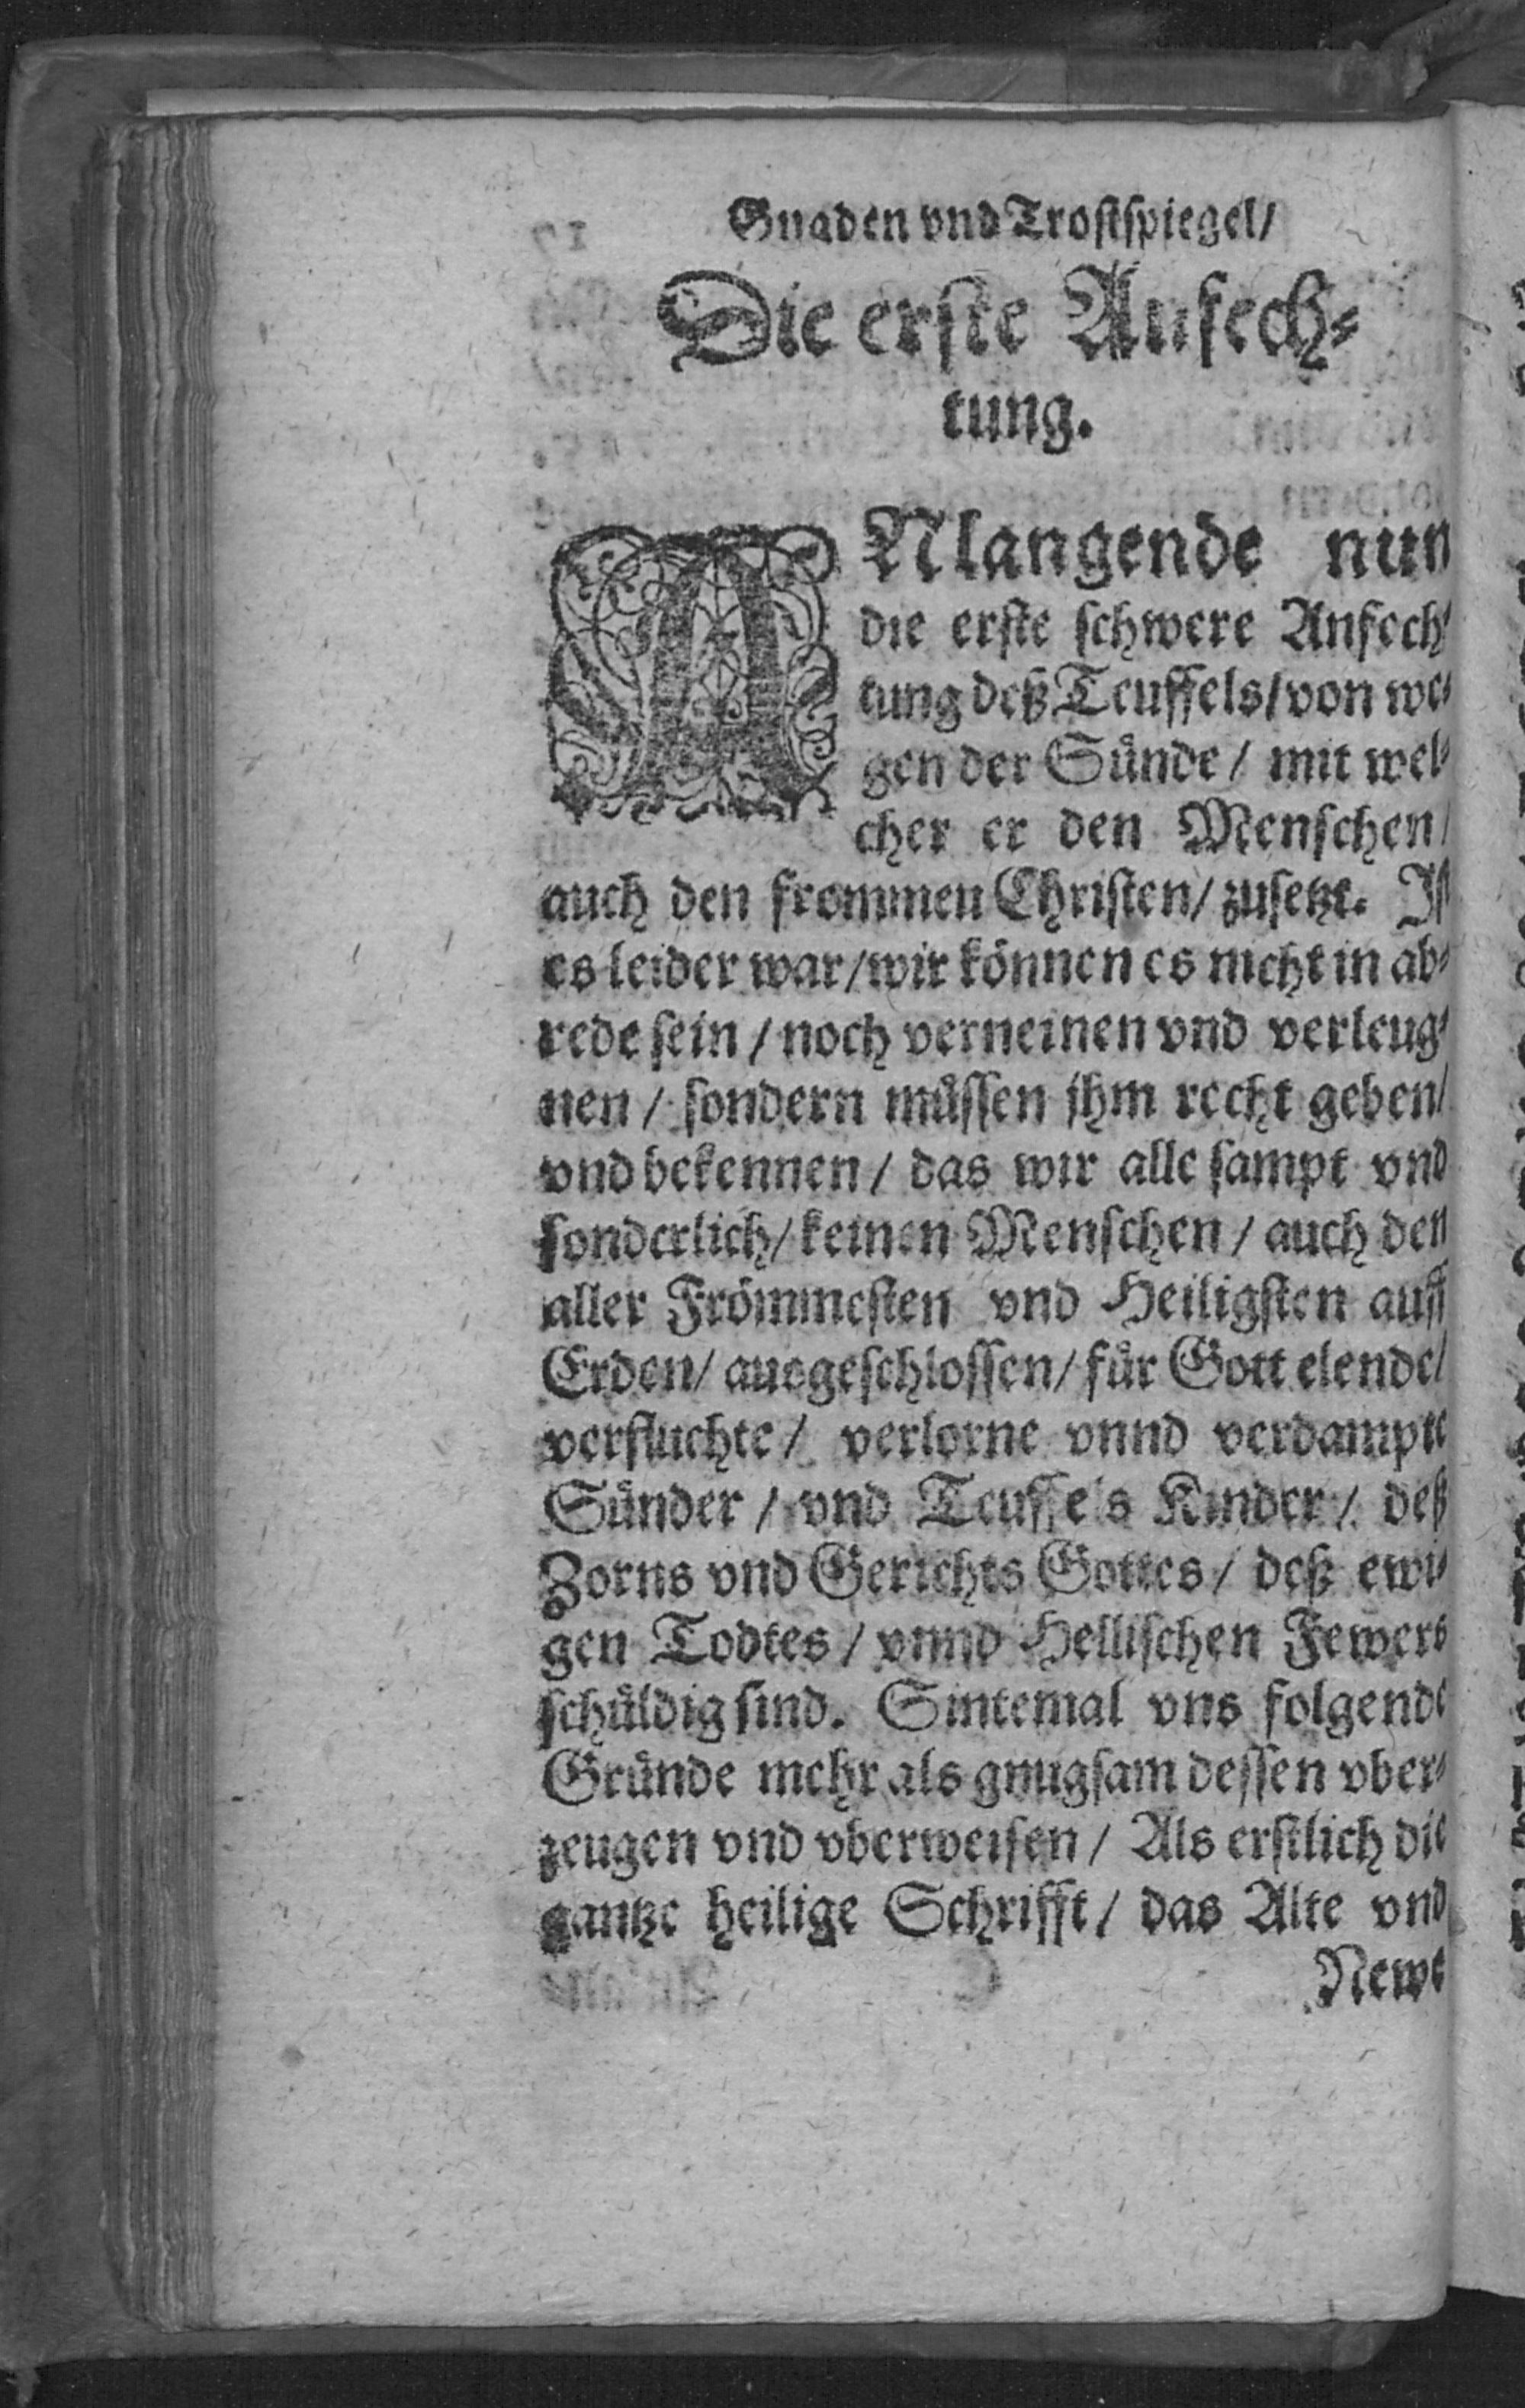 Gnaden vnd Trostspiegel/
Die erste Anfech⸗
tung.
ANlangende nun
die erste schwere Anfech⸗
tung deß Teuffels/ von we⸗
gen der Sünde/ mit wel⸗
cher er den Menschen/
auch den frommen Christen/ zusetzt. Ist
es leider war/ wir können es nicht in ab⸗
rede sein/ noch verneinen vnd verleug⸗
nen/ sondern müssen jhm recht geben/
vnd bekennen/ das wir alle sampt vnd
sonderlich/ keinen Menschen/ auch den
aller Frömmesten vnd Heiligsten auff
Erden/ ausgeschlossen/ für Gott elende/
verfluchte/ verlorne vnnd verdampte
Sünder/ vnd Teuffels Kinder/ deß
Zorns vnd Gerichts Gottes/ deß ewi⸗
gen Todtes/ vnnd Hellischen Fewers
schüldig sind. Sintemal vns folgende
Gründe mehr als gnugsam dessen vber⸗
zeugen vnd vberweisen/ Als erstlich die
gantze heilige Schrifft/ das Alte vnd
Newe